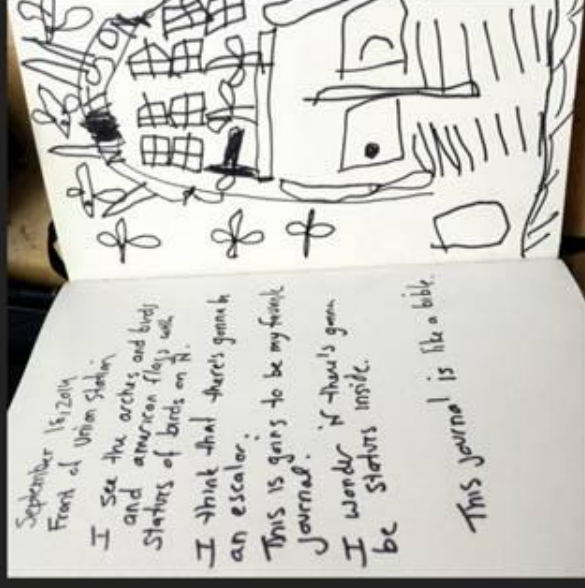 September 18, 2014
Front of Union Station
I see the arches and birds
and american flags with
Staturs of birds on it.
I think that there's gonna b
an escalor.
This is going to be my favorite
journal.
I wonder if there's gonna
be staturs inside.
This journal is like a bible.